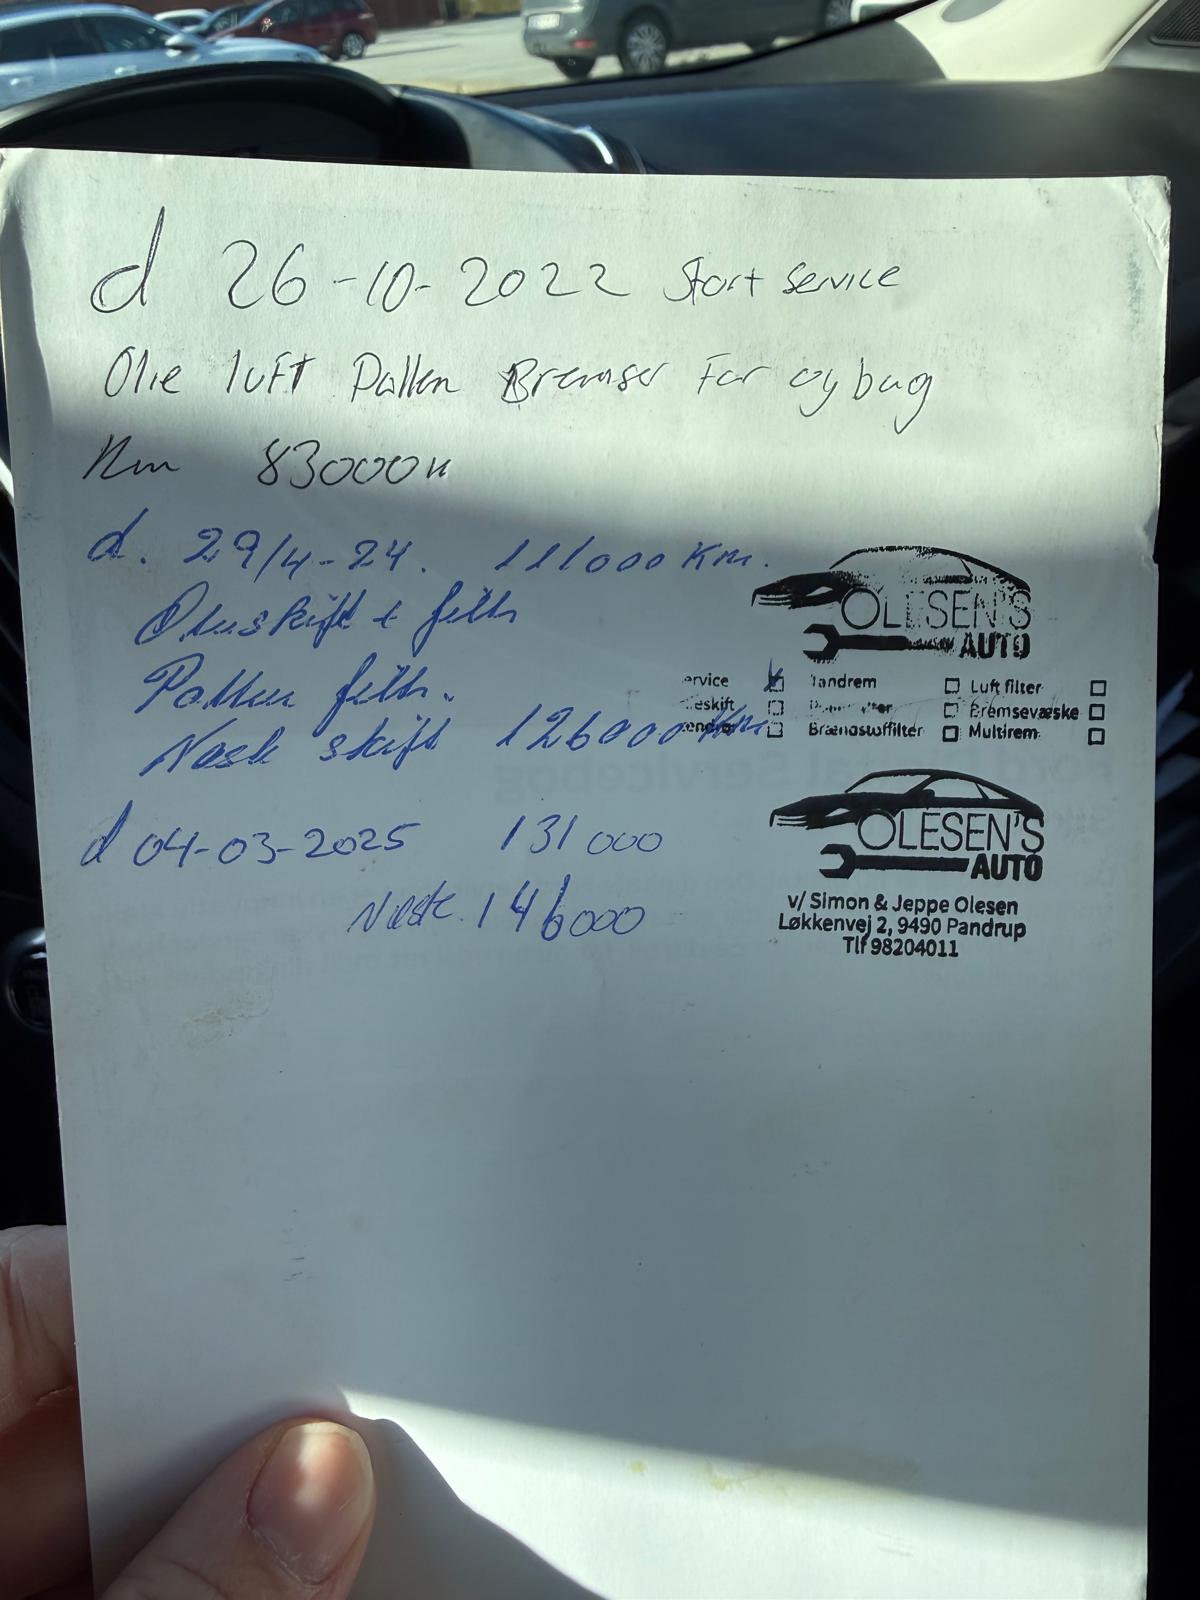 d 26-10-2022 Start service
Olie luft Pollen Bremser For og bag
Km 83000
d. 29/4-24. 111000 Km.
Olieskift + filt
Pollen filt.
Næste skift 126000 Km
OLESEN'S
AUTO
ervice Tandrem Luft filter
ieskift Bremsevæske
Brændstoffilter Multirem
d 04-03-2025 131000
Næste. 146000
OLESEN'S
AUTO
v/ Simon & Jeppe Olesen
Løkkenvej 2, 9490 Pandrup
Tlf 98204011